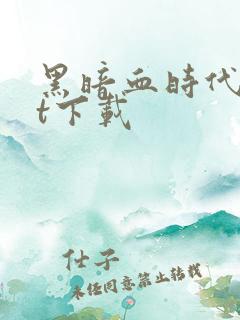 黑暗血時代
t下載
仕子
未经同意禁止转载